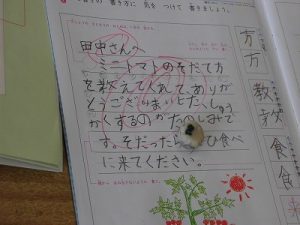 書き方に 気を つけて 書きましょう。
田中さんへ
ミニトマトのそだて方
を教えてくれて、ありが
とうございました。しゅう
かくするのがたのしみで
す。そだったら ひ食べ
に来てください。
方
方
教
教
食
食